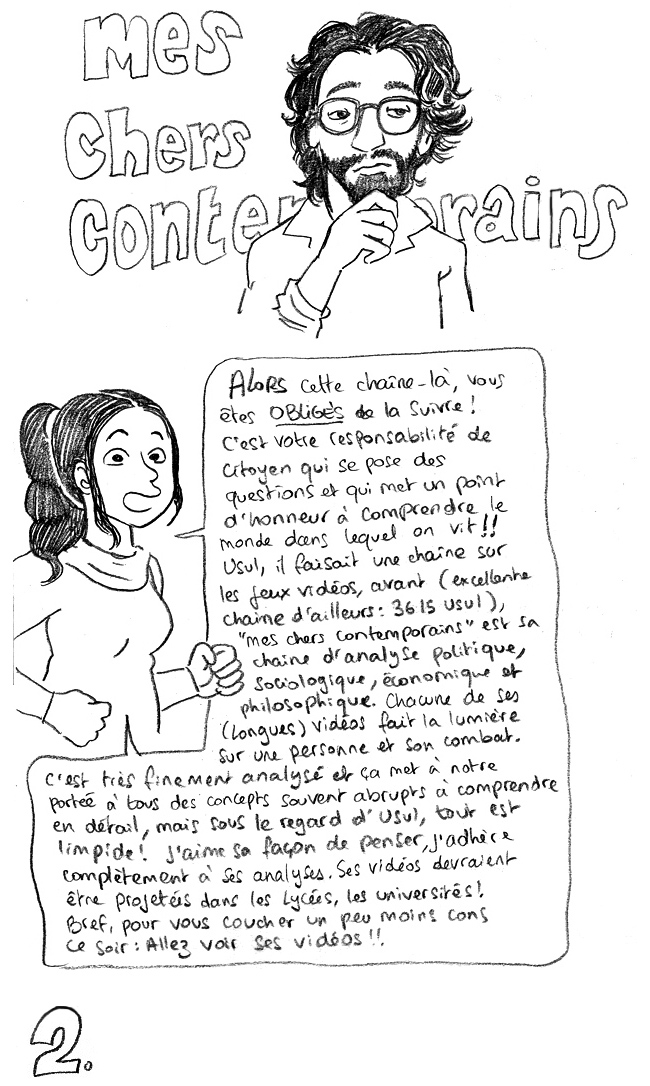 mes
chers
contemporains
Alors cette chaîne-là, vous
êtes OBLIGÉS de la suivre !
C'est votre responsabilité de
citoyen qui se pose des
questions et qui met un point
d'honneur à comprendre le
monde dans lequel on vit !!
Usul, il faisait une chaîne sur
les jeux vidéos, avant (excellente
chaîne d'ailleurs : 3615 usul),
"mes chers contemporains" est sa
chaîne d'analyse politique,
sociologique, économique et
philosophique. Chacune de ses
(longues) vidéos fait la lumière
sur une personne et son combat.
C'est très finement analysé et ça met à notre
porteé à tous des concepts souvent abrupts à comprendre
en détail, mais sous le regard d'Usul, tout est
limpide ! J'aime sa façon de penser, j'adhère
complètement à ses analyses. Ses vidéos devraient
être projeteés dans les Lycées, les universités !
Bref, pour vous coucher un peu moins cons
ce soir : Allez voir ses vidéos !!
2.